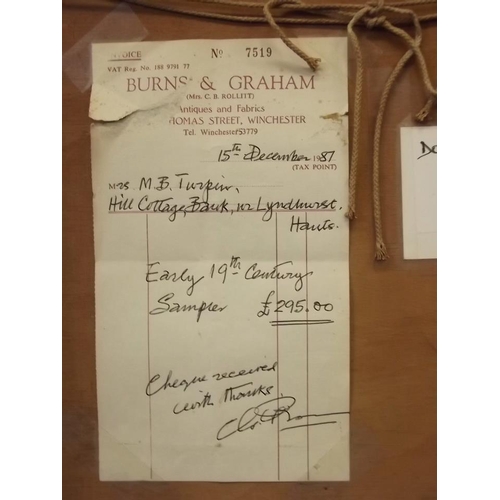 INVOICE No 7519
VAT Reg. No. 188 9791 77
BURNS & GRAHAM
(Mrs. C. B. ROLLITT)
Antiques and Fabrics
THOMAS STREET, WINCHESTER
Tel. Winchester 53779
15th December 1987
(TAX POINT)
Mrs M. B. Turpin,
Hill Cottage, Bank, nr Lyndhurst.
Hants.
Early 19th Century
Sampler £295.00
Cheque received
with thanks.